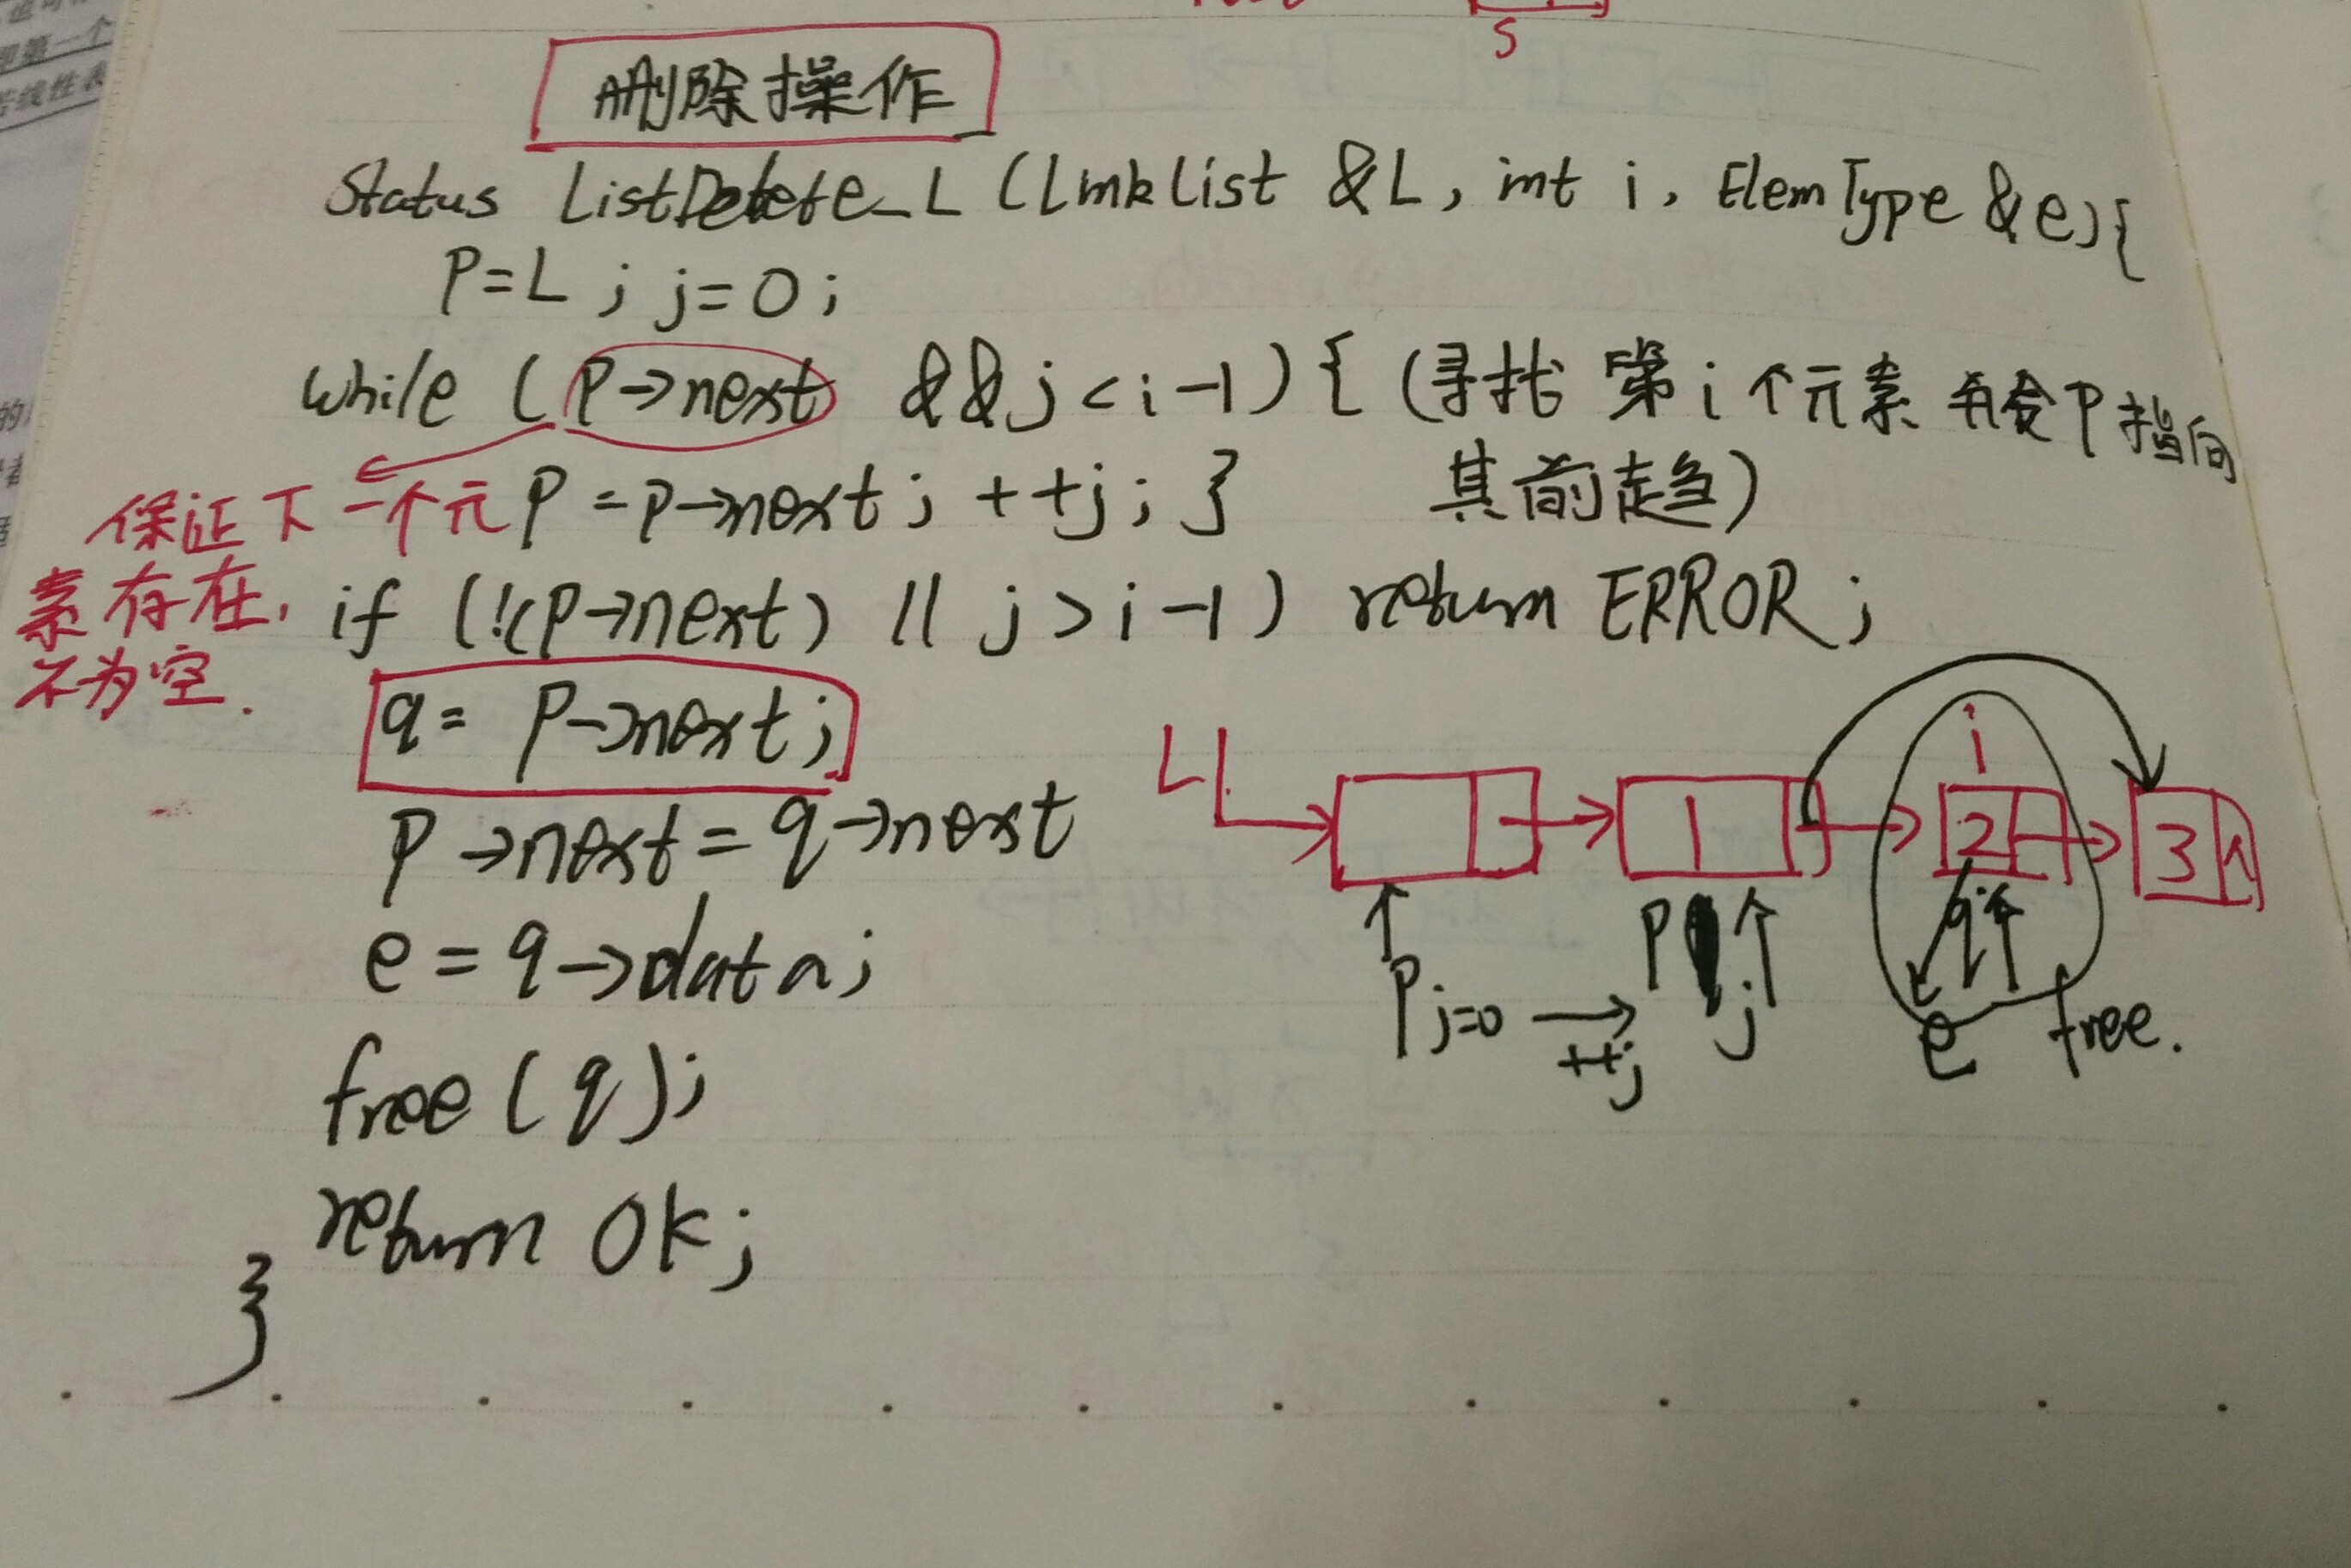 S
删除操作
Status ListDelete_L (LinkList &L, int i, ElemType &e){
P=L; j=0;
while (P->next &&j<i-1) { (寻找第i个元素 并令P指向
其前趋)
P=P->next; ++j; }
保证下一个元
素存在,
不为空.
if (!(P->next) || j>i-1) return ERROR;
q= P->next;
P->next=q->next
e=q->data;
free(q);
return OK;
}
L
i
1
2
3 ^
P j=0
++j
P
j
q
e
free.